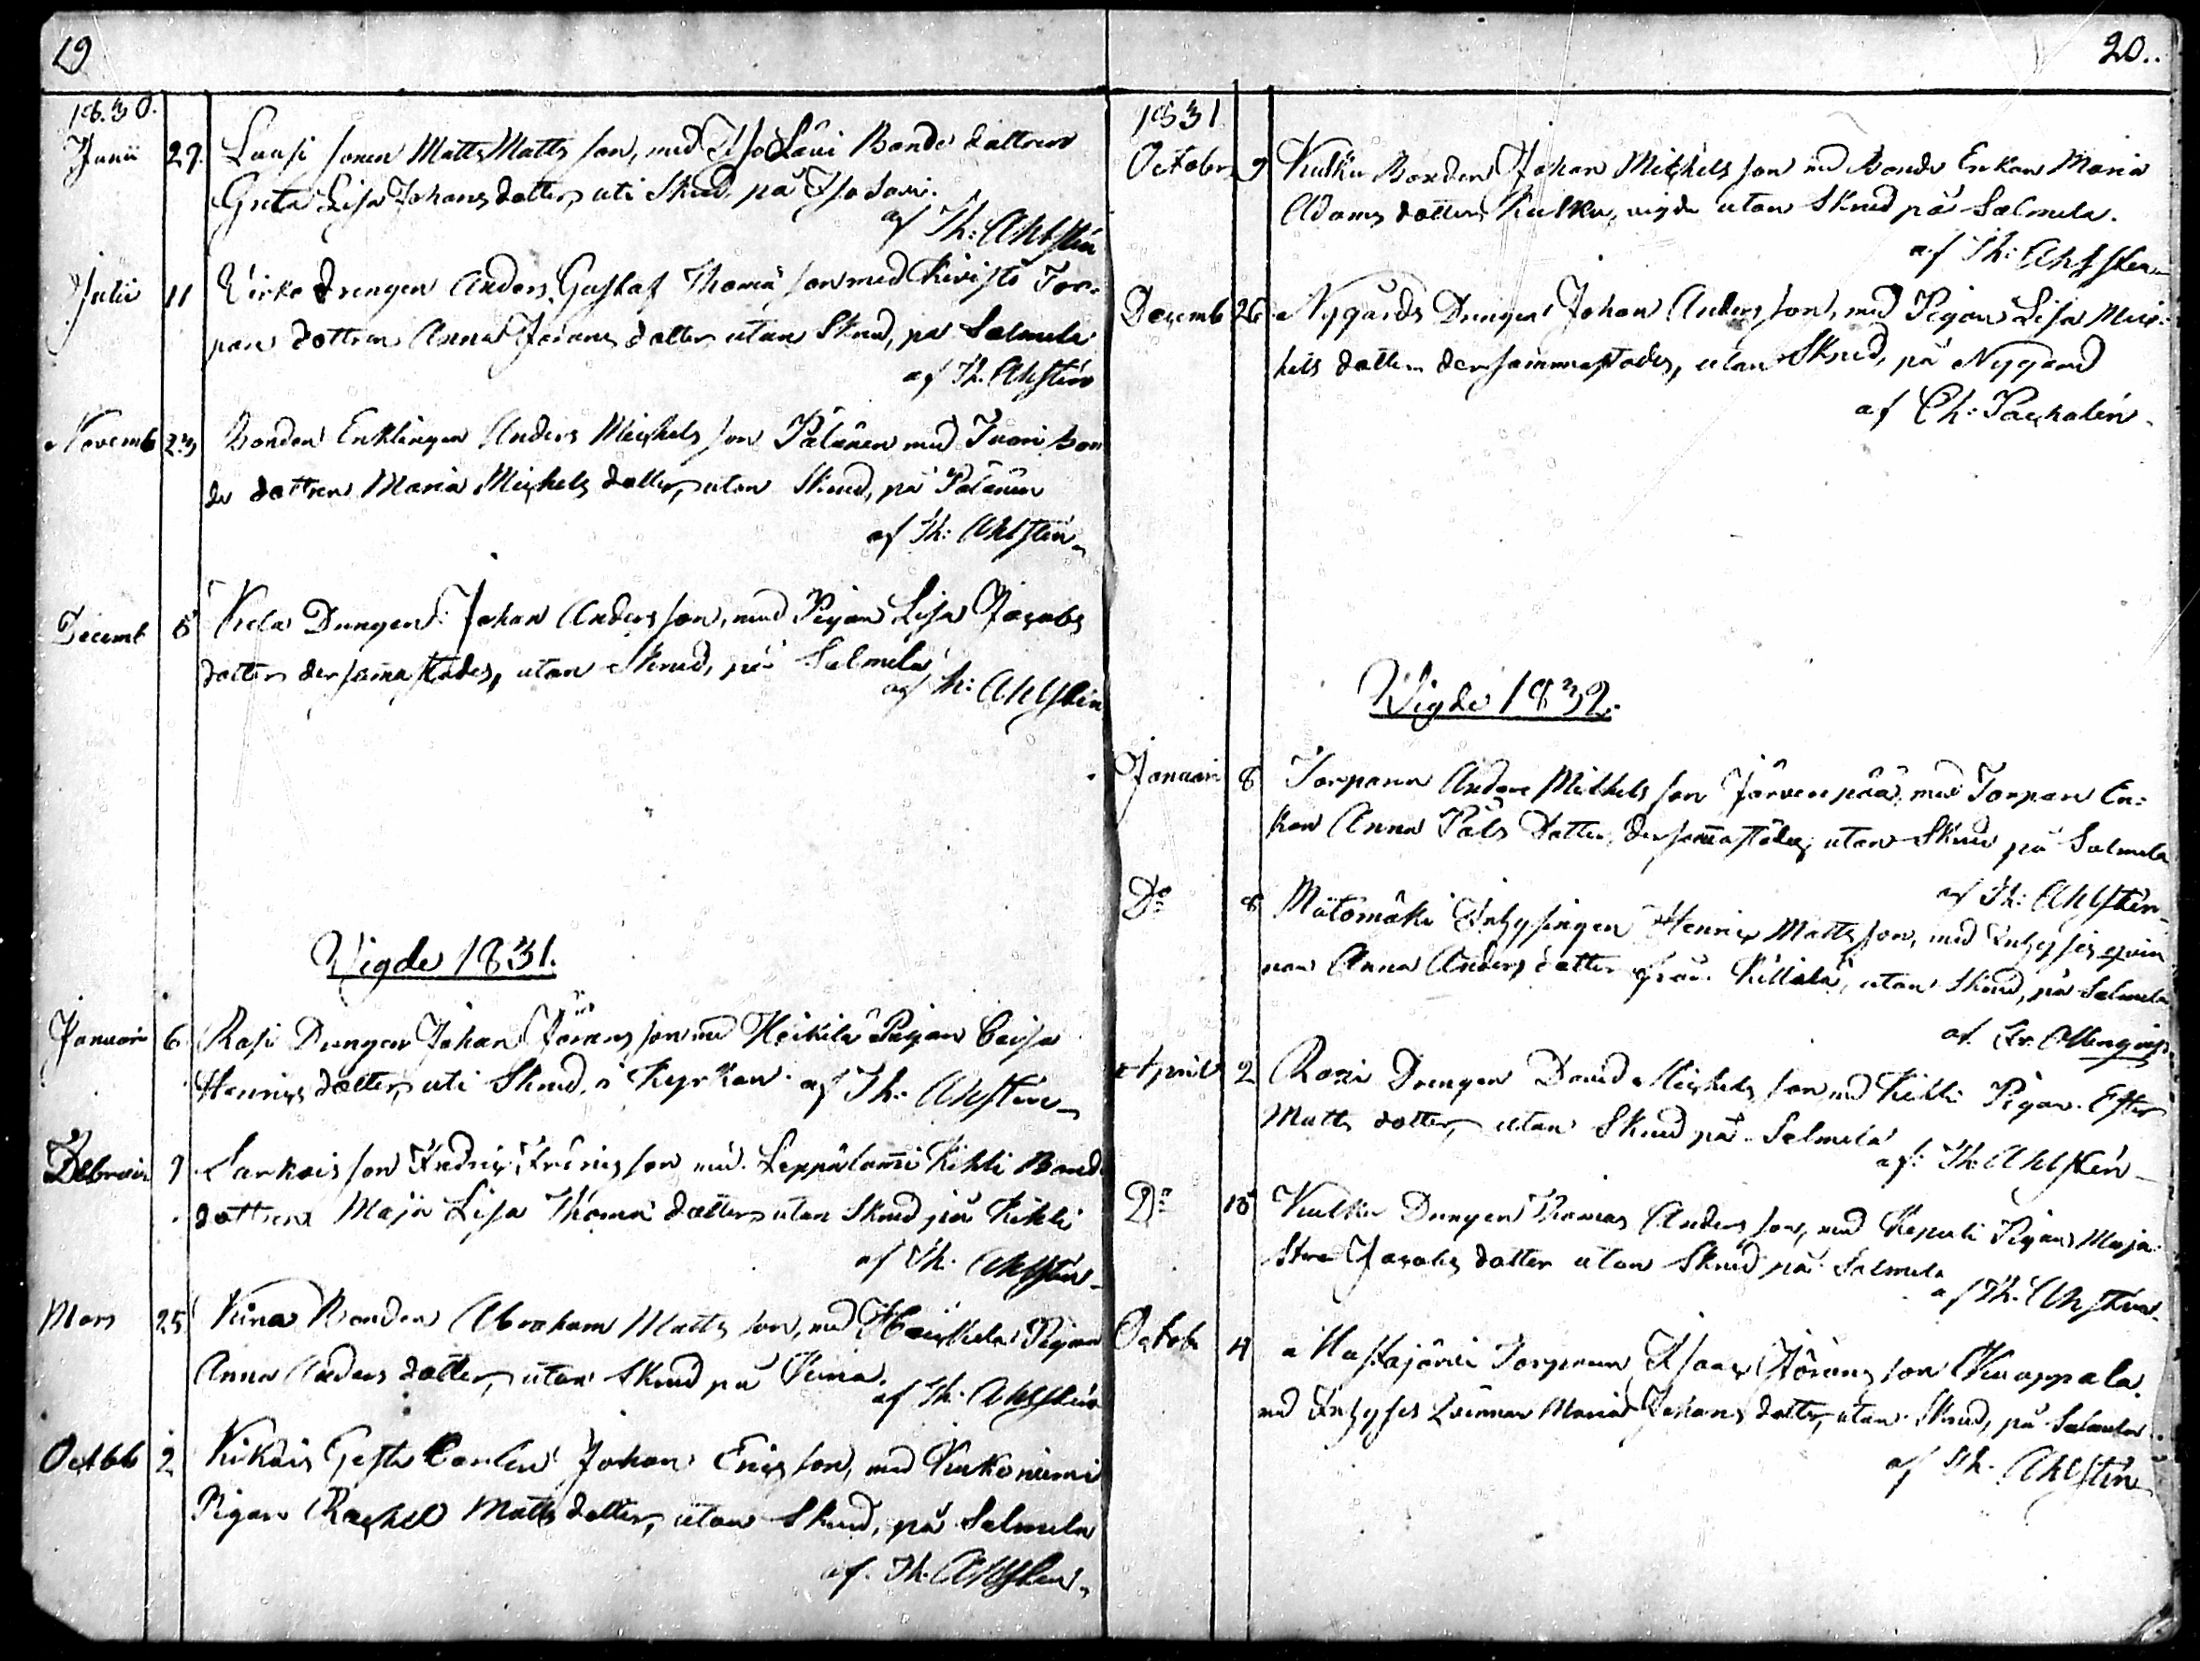 19
1830.
Junii 27. Laasi sonen Matts Matts son, med Iso Lavi Bonde dottren
Greta Lisa Johans dotter, uti Skrud, på Iso Lavi.
af Th: Ahlstén
Julii 11 Virke Drengen Anders Gustaf Thomæ son med Kivistö Tor-
pare dottren Anna Jörans dotter utan Skrud, på Salmela
af Th. Ahlstén
Novemb 23 Bonden Enklingen Anders Michels son Pälänen med Bon
de dottren Maria Michels dotter, utan Skrud, på Pälänen
af Th: Ahlstén
Decemb 5 Drengen Johan Anders son, med Pigan Lisa Jacobs
dotter dersamastädes, utan Skrud, på Salmela
af Th: Ahlstén
Vigde 1831.
Januari 6 Rasi Drengen Johan Jörans son med Heikilä Pigan Caisa
Henrics dotter, uti Skrud, i Kyrkan af Th: Ahlstén
Februari 9 son Fredric Fredrics son med Leppälami Kihli Bonde
dottren Maja Lisa Thomæ dotter utan Skrud på Kihli
af Th: Ahlstén
Mars 25 Bonden Abraham Matts son, med Pigan
Anna Anders dotter, utan Skrud på
af Th. Ahlstén
Octob 2 Johan Erics son, med Kukoniemi
Pigan Rachel Matts dotter, utan Skrud, på Salmela
af. Th. Ahlstén
20..
1831
October 9 Kulku Bonden Johan Michels son med Bonde Enkan Maria
Adams dotter Kulku, vigde utan Skrud på Salmela.
af Th: Ahlstén
Decemb 26 Nygårds Drengen Johan Anders son, med Pigan Lisa Mic-
hels dotter dersammastädes, utan Skrud, på Nygård
af Ch: Pachalén
Vigde 1832.
Januari 8 Torparen Anders Mikkels son Järvenpää, med Torpare En=
kan Anna Påls Dotter, dersamastädes, utan Skrud på Salmela
af Th: Ahlstén
Do 8 Mätömäki Inhysingen Henric Matts son, med Inhyses qvin
nan Anna Anders dotter från Killälä, utan Skrud, på Salmela
af Fr.
April 2 Rasi Drengen David Michels son med Kihli Pigan Ester
Matts dotter, utan Skrud på Salmela
af: Th: Ahlstén
Do 15 Kulku Drengen Thomas Anders son, med Pigan Maja
Stina Jacobs dotter utan Skrud på Salmela
af Th. Ahlstén
Octob 4 Mustajärvi Torparen Isaac Jörans son Knappala
med Inhyses Qvinnan Maria Johans dotter, utan Skrud, på Salmela
af Th. Ahlstén